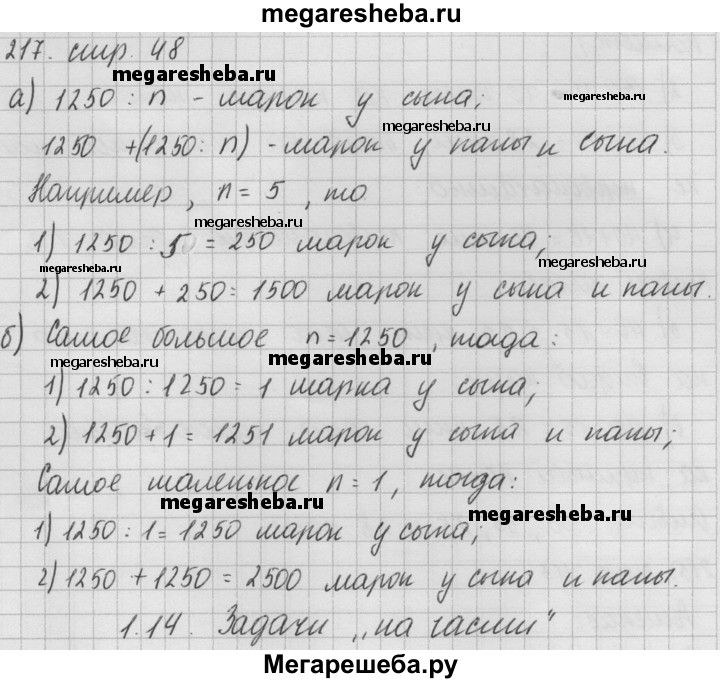 megaresheba.ru
217. стр. 48
megaresheba.ru
а) 1250 : n - марок у сына;
megaresheba.ru
megaresheba.ru
1250 +(1250: n) - марок у папы и сына.
Например, n = 5, то
megaresheba.ru
1) 1250 : 5 = 250 марок у сына;
megaresheba.ru
megaresheba.ru
2) 1250 + 250 = 1500 марок у сына и папы.
б) Самое большое n = 1250, тогда:
megaresheba.ru
megaresheba.ru
1) 1250 : 1250 = 1 марка у сына;
2) 1250 + 1 = 1251 марок у сына и папы;
Самое маленькое n = 1, тогда:
megaresheba.ru
megaresheba.ru
1) 1250 : 1 = 1250 марок у сына;
2) 1250 + 1250 = 2500 марок у сына и папы.
1.14. Задачи „на части"
Мегарешеба.ру